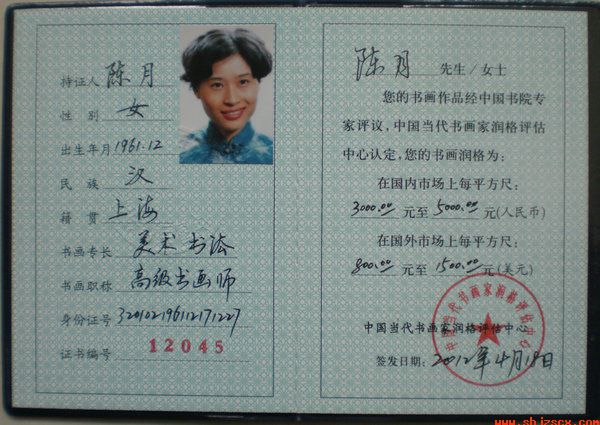 持证人 陈月
性 别 女
出生年月 1961.12
民 族 汉
籍 贯 上海
书画专长 美术 书法
书画职称 高级书画师
身份证号 320102196112171227
证书编号 12045
陈月 先生/女士
您的书画作品经中国书院专
家评议，中国当代书画家润格评估
中心认定，您的书画润格为：
在国内市场上每平方尺：
3000.00 元至 5000.00 元(人民币)
在国外市场上每平方尺：
800.00 元至 1500.00 元(美元)
中国当代书画家润格评估中心
中国当代书画家润格评估中心
签发日期：2012年4月18日